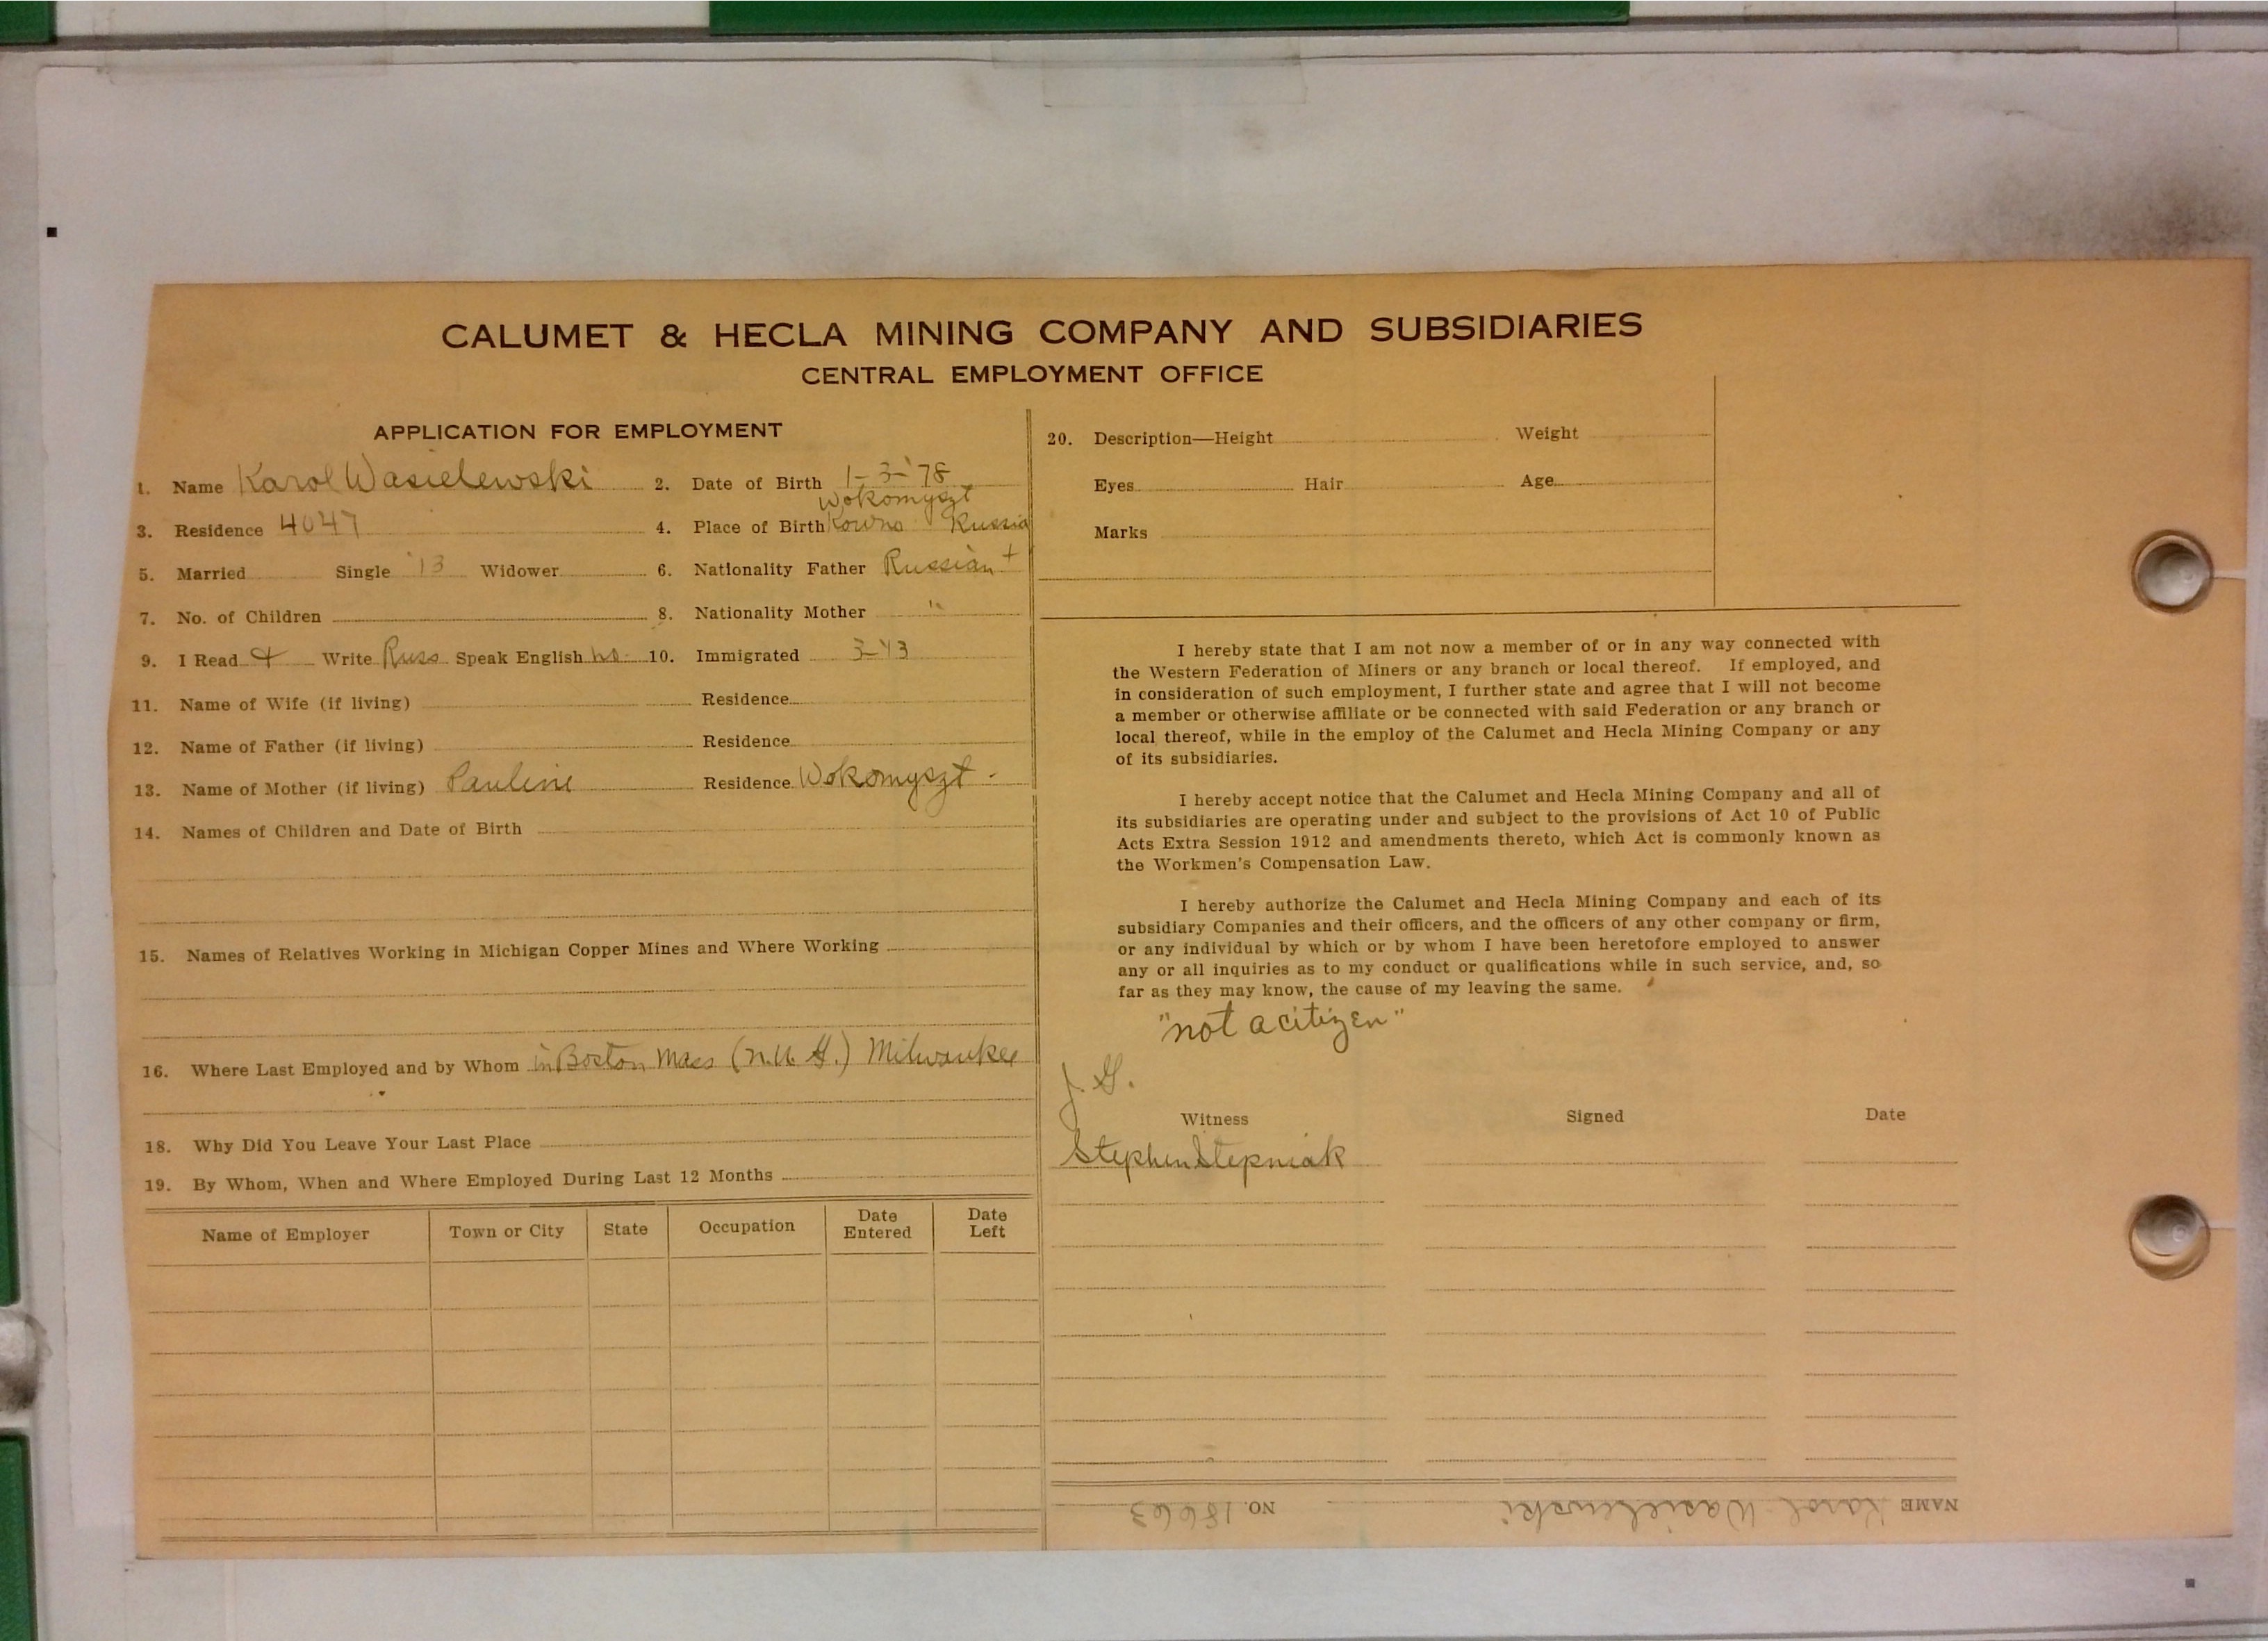 CALUMET & HECLA MINING COMPANY AND SUBSIDIARIES
CENTRAL EMPLOYMENT OFFICE
APPLICATION FOR EMPLOYMENT
1. Name Karol Wasielewski 2. Date of Birth 1-3-'78
Wokomyszt
3. Residence 4047 4. Place of Birth Kowno Russia
5. Married Single '13 Widower 6. Nationality Father Russian +
7. No. of Children 8. Nationality Mother "
9. I Read & Write Russ Speak English no 10. Immigrated 3-'13
11. Name of Wife (if living) Residence
12. Name of Father (if living) Residence
13. Name of Mother (if living) Pauline Residence Wokomyszt -
14. Names of Children and Date of Birth
15. Names of Relatives Working in Michigan Copper Mines and Where Working
16. Where Last Employed and by Whom in Boston Mass (n.u.G.) Milwaukee
18. Why Did You Leave Your Last Place
19. By Whom, When and Where Employed During Last 12 Months
Name of Employer Town or City State Occupation Date Entered Date Left
20. Description—Height Weight
Eyes Hair Age
Marks
I hereby state that I am not now a member of or in any way connected with
the Western Federation of Miners or any branch or local thereof. If employed, and
in consideration of such employment, I further state and agree that I will not become
a member or otherwise affiliate or be connected with said Federation or any branch or
local thereof, while in the employ of the Calumet and Hecla Mining Company or any
of its subsidiaries.
I hereby accept notice that the Calumet and Hecla Mining Company and all of
its subsidiaries are operating under and subject to the provisions of Act 10 of Public
Acts Extra Session 1912 and amendments thereto, which Act is commonly known as
the Workmen's Compensation Law.
I hereby authorize the Calumet and Hecla Mining Company and each of its
subsidiary Companies and their officers, and the officers of any other company or firm,
or any individual by which or by whom I have been heretofore employed to answer
any or all inquiries as to my conduct or qualifications while in such service, and, so
far as they may know, the cause of my leaving the same.
"not a citizen"
J. G.
Witness Signed Date
Stephen Stepniak
NAME Karol Wasielewski NO. 18663